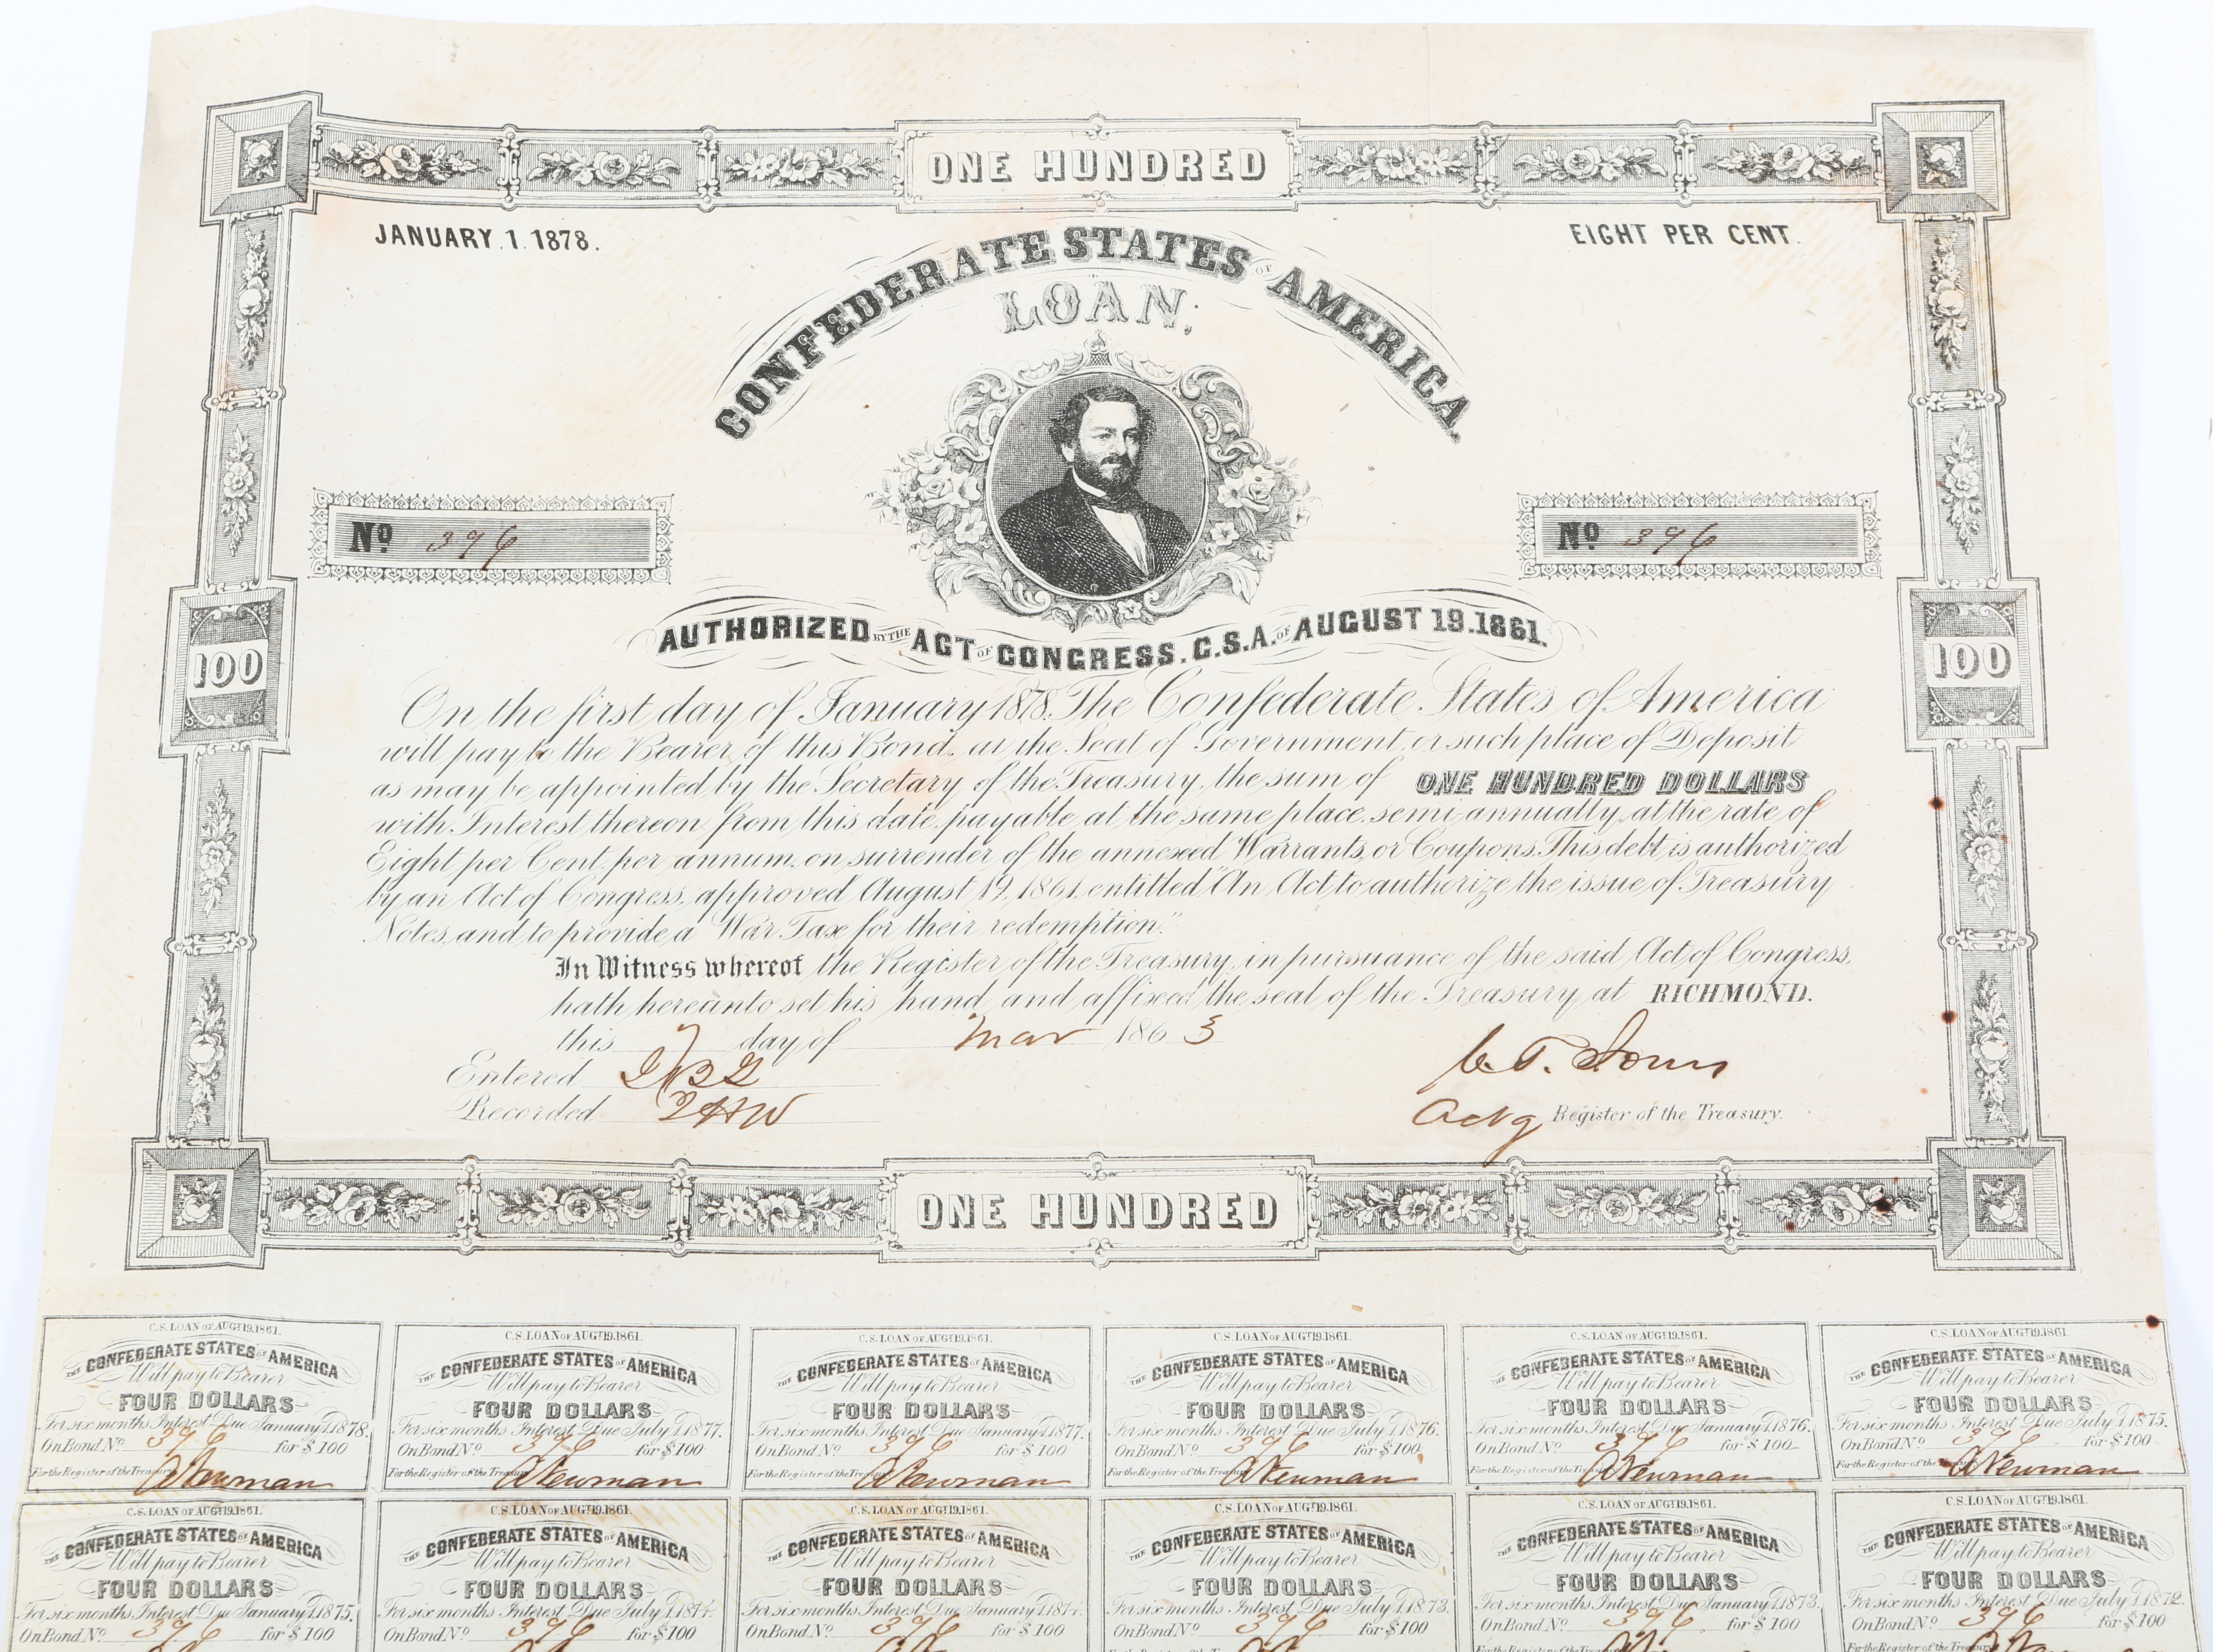 ONE HUNDRED
JANUARY.1.1878.
EIGHT PER CENT.
CONFEDERATE STATES OF AMERICA.
LOAN,
Nº 396
Nº 396
AUTHORIZED BY THE ACT OF CONGRESS. C.S.A. OF AUGUST 19.1861.
100
100
On the first day of January 1878. The Confederate States of America
will pay to the Bearer of this Bond, at the Seat of Government, or such place of Deposit
as may be appointed by the Secretary of the Treasury, the sum of ONE HUNDRED DOLLARS
with Interest thereon from this date, payable at the same place, semi-annually, at the rate of
Eight per Cent. per annum, on surrender of the annexed Warrants, or Coupons. This debt is authorized
by an Act of Congress, approved August 19, 1861, entitled "An Act to authorize the issue of Treasury
Notes, and to provide a War Tax for their redemption."
In Witness whereof the Register of the Treasury, in pursuance of the said Act of Congress,
hath hereunto set his hand, and affixed the seal of the Treasury at RICHMOND.
this 7 day of Mar 1863
Entered
Recorded
C. T. Jones
Actg Register of the Treasury.
ONE HUNDRED
C.S. LOAN OF AUGT 19.1861.
THE CONFEDERATE STATES OF AMERICA
Will pay to Bearer
FOUR DOLLARS
For six months Interest Due January 1.1878.
On Bond Nº 396 for $100
For the Register of the Treasury A Newman
C.S. LOAN OF AUGT 19.1861.
THE CONFEDERATE STATES OF AMERICA
Will pay to Bearer
FOUR DOLLARS
For six months Interest Due July 1.1877.
On Bond Nº 396 for $100
For the Register of the Treasury A Newman
C.S. LOAN OF AUGT 19.1861.
THE CONFEDERATE STATES OF AMERICA
Will pay to Bearer
FOUR DOLLARS
For six months Interest Due January 1.1877.
On Bond Nº 396 for $100
For the Register of the Treasury A Newman
C.S. LOAN OF AUGT 19.1861.
THE CONFEDERATE STATES OF AMERICA
Will pay to Bearer
FOUR DOLLARS
For six months Interest Due July 1.1876.
On Bond Nº 396 for $100
For the Register of the Treasury A Newman
C.S. LOAN OF AUGT 19.1861.
THE CONFEDERATE STATES OF AMERICA
Will pay to Bearer
FOUR DOLLARS
For six months Interest Due January 1.1876.
On Bond Nº 396 for $100
For the Register of the Treasury A Newman
C.S. LOAN OF AUGT 19.1861.
THE CONFEDERATE STATES OF AMERICA
Will pay to Bearer
FOUR DOLLARS
For six months Interest Due July 1.1875.
On Bond Nº 396 for $100
For the Register of the Treasury A Newman
C.S. LOAN OF AUGT 19.1861.
THE CONFEDERATE STATES OF AMERICA
Will pay to Bearer
FOUR DOLLARS
For six months Interest Due January 1.1875.
On Bond Nº 396 for $100
C.S. LOAN OF AUGT 19.1861.
THE CONFEDERATE STATES OF AMERICA
Will pay to Bearer
FOUR DOLLARS
For six months Interest Due July 1.1874.
On Bond Nº 396 for $100
C.S. LOAN OF AUGT 19.1861.
THE CONFEDERATE STATES OF AMERICA
Will pay to Bearer
FOUR DOLLARS
For six months Interest Due January 1.1874.
On Bond Nº 396 for $100
C.S. LOAN OF AUGT 19.1861.
THE CONFEDERATE STATES OF AMERICA
Will pay to Bearer
FOUR DOLLARS
For six months Interest Due July 1.1873.
On Bond Nº 396 for $100
C.S. LOAN OF AUGT 19.1861.
THE CONFEDERATE STATES OF AMERICA
Will pay to Bearer
FOUR DOLLARS
For six months Interest Due January 1.1873.
On Bond Nº 396 for $100
C.S. LOAN OF AUGT 19.1861.
THE CONFEDERATE STATES OF AMERICA
Will pay to Bearer
FOUR DOLLARS
For six months Interest Due July 1.1872.
On Bond Nº 396 for $100